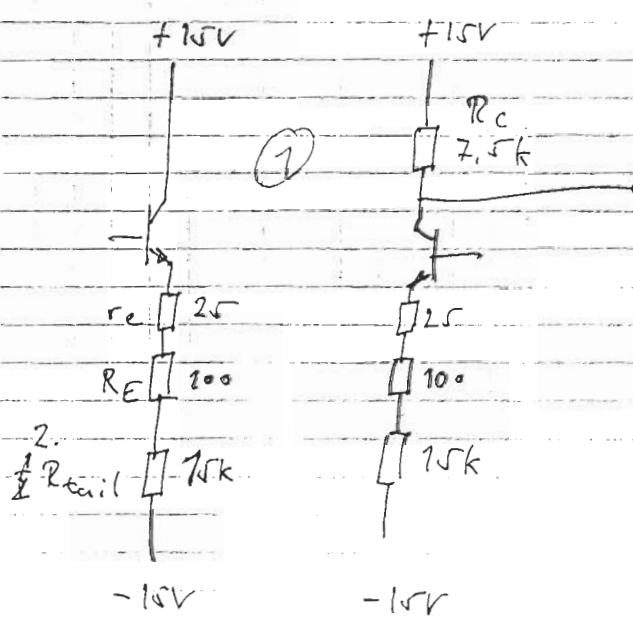 +15V
+15V
1
R_C
7.5k
r_e 25
25
R_E 100
100
2.
R_tail 15k
15k
-15V
-15V